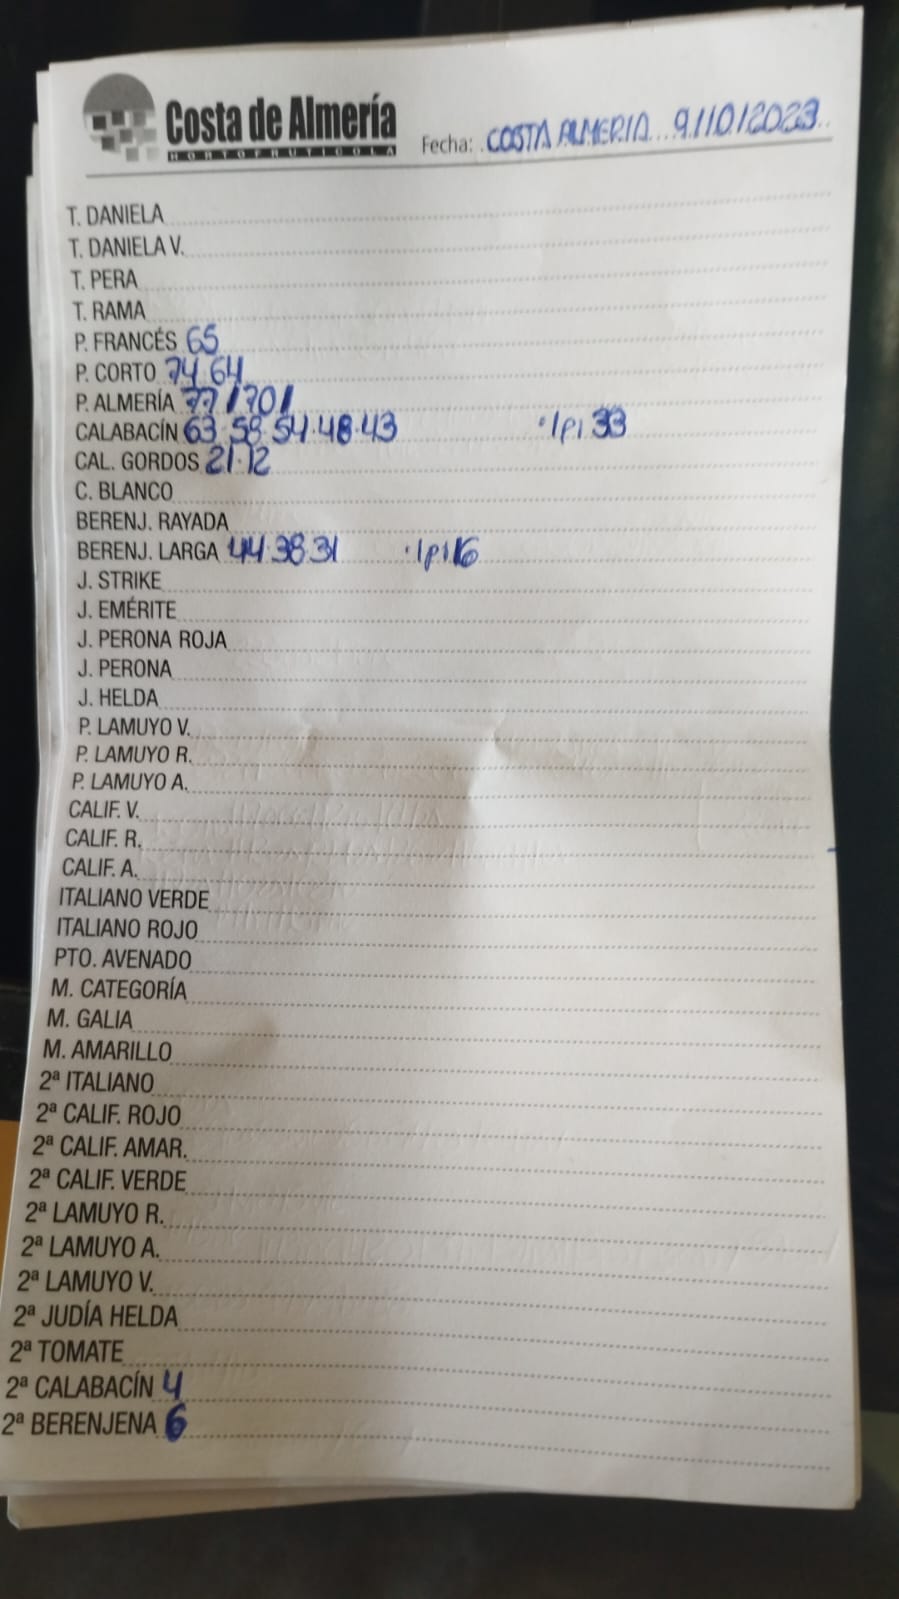 Costa de Almería
HORTOFRUTICOLA
Fecha: COSTA ALMERIA 9/10/2023
T. DANIELA
T. DANIELA V.
T. PERA
T. RAMA
P. FRANCÉS 65
P. CORTO 74 64
P. ALMERÍA 77 / 70 /
CALABACÍN 63 · 58 · 54 · 48 · 43 · 1p1 33
CAL. GORDOS 21 · 12
C. BLANCO
BERENJ. RAYADA
BERENJ. LARGA 44 · 38 · 31 · 1p1 16
J. STRIKE
J. EMÉRITE
J. PERONA ROJA
J. PERONA
J. HELDA
P. LAMUYO V.
P. LAMUYO R.
P. LAMUYO A.
CALIF. V.
CALIF. R.
CALIF. A.
ITALIANO VERDE
ITALIANO ROJO
PTO. AVENADO
M. CATEGORÍA
M. GALIA
M. AMARILLO
2ª ITALIANO
2ª CALIF. ROJO
2ª CALIF. AMAR.
2ª CALIF. VERDE
2ª LAMUYO R.
2ª LAMUYO A.
2ª LAMUYO V.
2ª JUDÍA HELDA
2ª TOMATE
2ª CALABACÍN 4
2ª BERENJENA 6